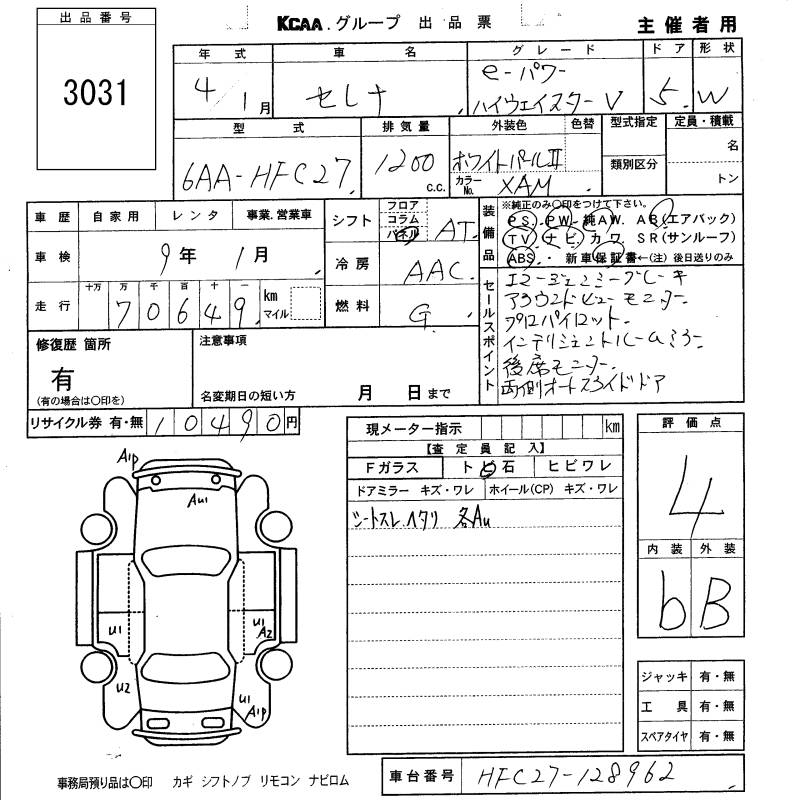 出品番号
3031
KCAA.グループ 出品票
主催者用
年式 車名 グレード ドア 形状
4/1月 セレナ e-パワー ハイウェイスターV 5 W
型式 排気量 外装色 色替 型式指定 定員・積載
6AA-HFC27 1200 c.c. ホワイトパールII 名
カラーNo. XAM 類別区分 トン
車歴 自家用 レンタ 事業.営業車
車検 9年 1月
走行 十万 万 千 百 十 一 km マイル
70649
シフト フロア コラム パネル AT
冷房 AAC
燃料 G
装備品 ※純正のみ〇印をつけて下さい。
PS. PW. 純AW. AB(エアバック)
TV ナビ. カワ SR(サンルーフ)
ABS. 新車保証書←(注)後日送りのみ
セールスポイント
エマージェンシーブレーキ
アラウンドビューモニター
プロパイロット.
インテリジェントルームミラー
後席モニター.
両側オートスライドドア
修復歴 箇所
有
(有の場合は〇印を)
注意事項
名変期日の短い方 月 日まで
リサイクル券 有・無 10490円
現メーター指示 km
【査定員記入】
Fガラス トビ石 ヒビワレ
ドアミラー キズ・ワレ ホイール(CP) キズ・ワレ
シートスレ.ヘタリ 各Au
評価点
4
内装 外装
b B
ジャッキ 有・無
工具 有・無
スペアタイヤ 有・無
A1p
Au1
U1
U1
A2
U2
U1
A1p
事務局預り品は〇印 カギ シフトノブ リモコン ナビロム
車台番号 HFC27-128962